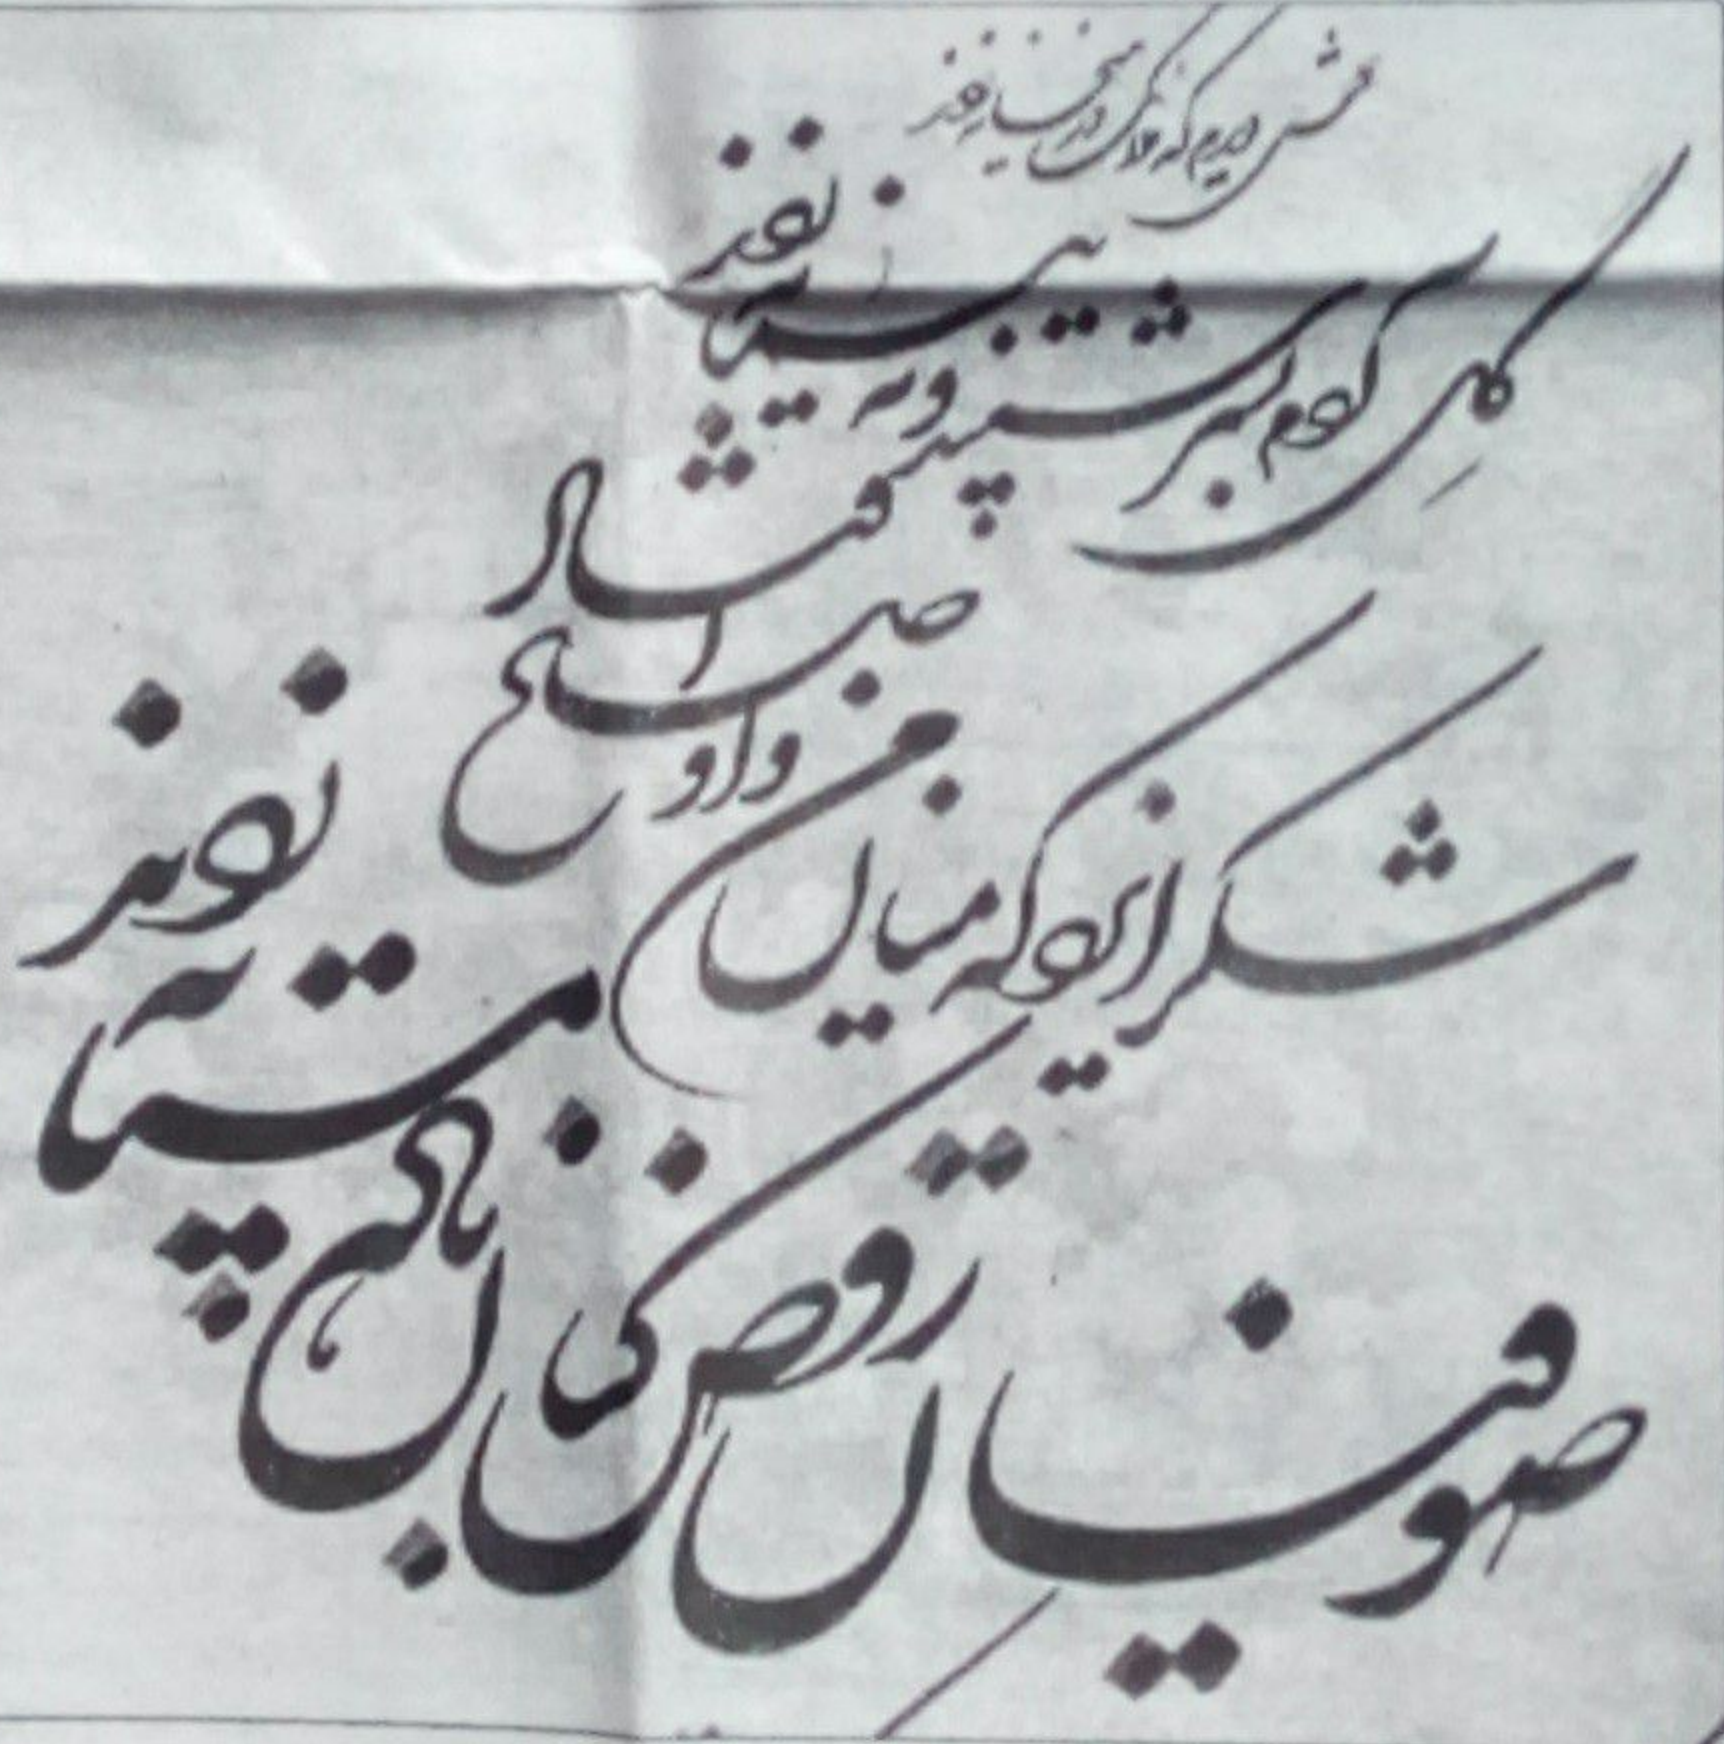 دوش دیدم که ملایک در میخانه زدند
گِل آدم بسرشتند و به پیمانه زدند
شکر ایزد که میان من و او صلح افتاد
صوفیان رقص کنان پیمانه زدند